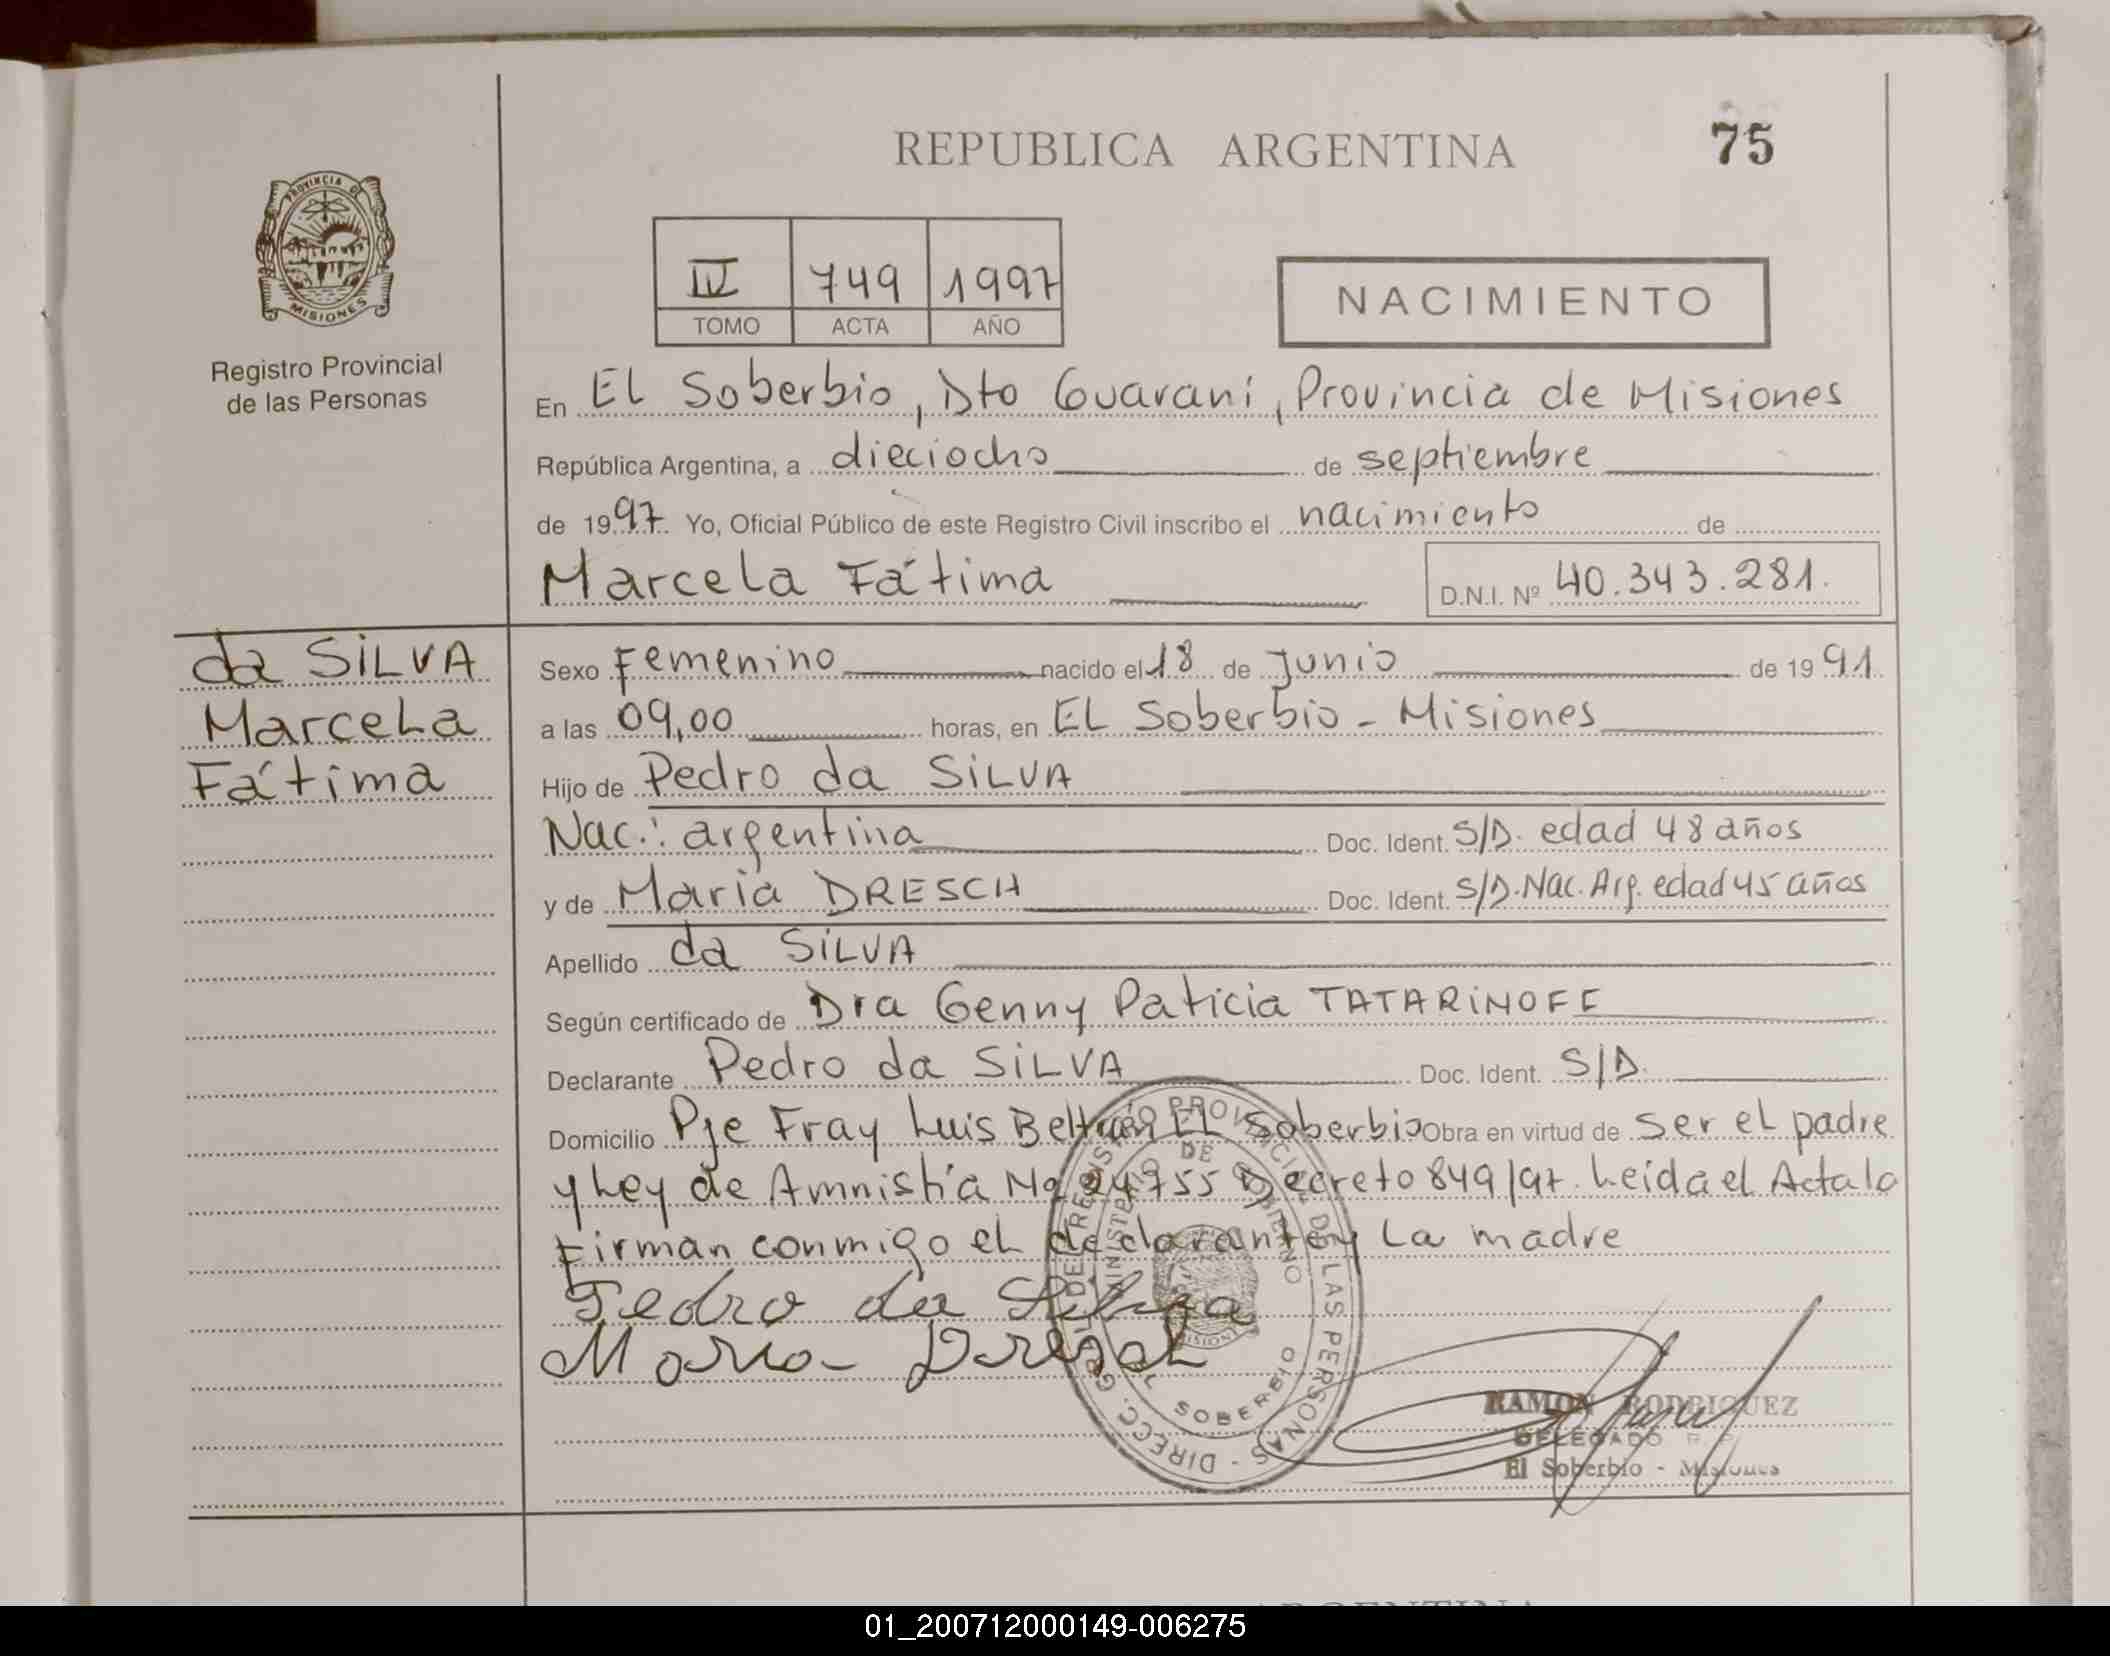 REPUBLICA ARGENTINA
75
PROVINCIA DE
MISIONES
Registro Provincial
de las Personas
IV 749 1997
TOMO ACTA AÑO
NACIMIENTO
En EL Soberbio, Dto Guaraní, Provincia de Misiones
República Argentina, a dieciocho de septiembre
de 1997. Yo, Oficial Público de este Registro Civil inscribo el nacimiento de
Marcela Fátima D.N.I. Nº 40.343.281.
da SiLVA
Marcela
Fátima
Sexo Femenino nacido el 18 de Junio de 1991
a las 09,00 horas, en EL Soberbio - Misiones
Hijo de Pedro da SiLVA
Nac.: argentina Doc. Ident. S/D. edad 48 años
y de María DRESCH Doc. Ident. S/D. Nac. Arg. edad 45 años
Apellido da SiLVA
Según certificado de Dra Genny Paticia TATARiNOFF
Declarante Pedro da SiLVA Doc. Ident. S/D.
Domicilio Pje Fray Luis Beltrán EL Soberbio Obra en virtud de ser el padre
y Ley de Amnistía Nº 24755 Decreto 849/97. Leida el Acta la
Firman conmigo el declarante y La madre
Pedro da Silva
Maria Dresch
DIRECC. GRAL. DE REGISTRO PROVINCIAL DE LAS PERSONAS -
MINISTERIO DE GOBIERNO
MISIONES
EL SOBERBIO
RAMON RODRIGUEZ
DELEGADO R. P.
El Soberbio - Misiones
ARGENTINA
01_200712000149-006275